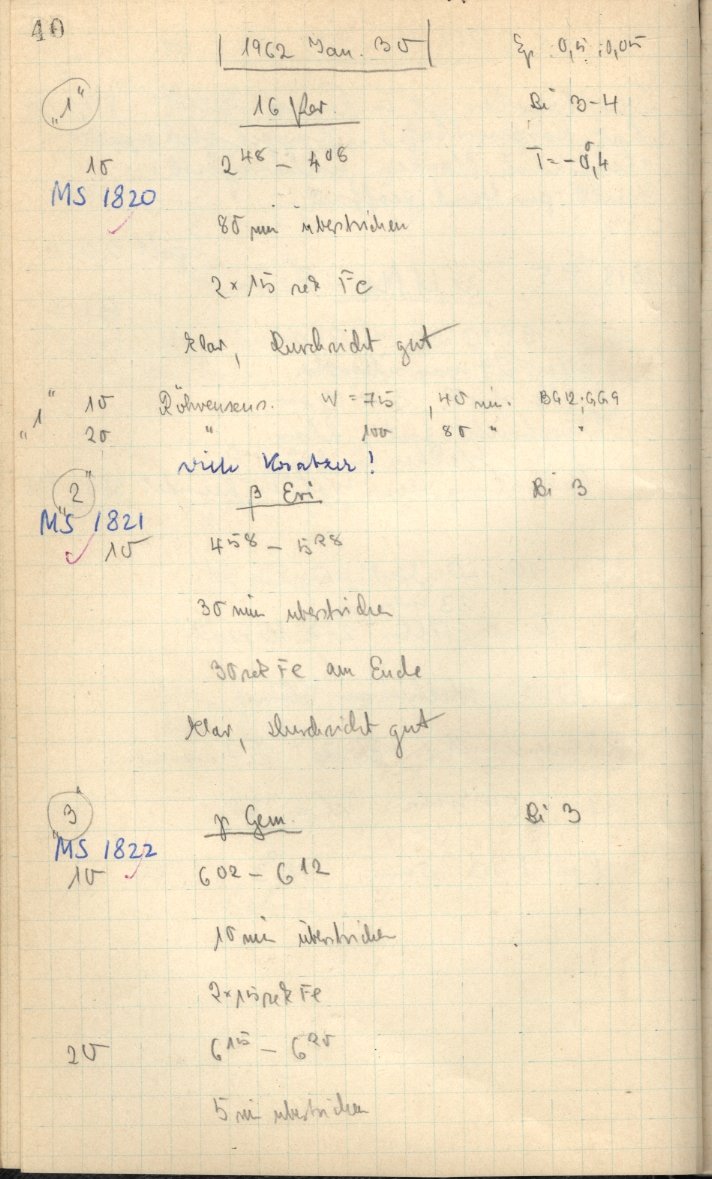 40
1962 Jan. 30 Sp. 0,5 ; 0,05
"1" 16 Per Bi 3-4
10 2 48 – 4 08 T = -0,4
MS 1820
80 min überstrichen
2 x 15 sek Fe
klar, Durchsicht gut
"1" 10 Röhrensens. W = 75 , 40 min. BG12; GG9
20 " 100 80 " "
viele Kratzer!
"2" β Eri Bi 3
MS 1821
10 4 58 – 5 28
30 min überstrichen
30 sek Fe am Ende
klar, Durchsicht gut
"3" γ Gem Bi 3
MS 1822
10 6 02 – 6 12
10 min überstrichen
2 x 15 sek Fe
20 6 15 – 6 20
5 min überstrichen